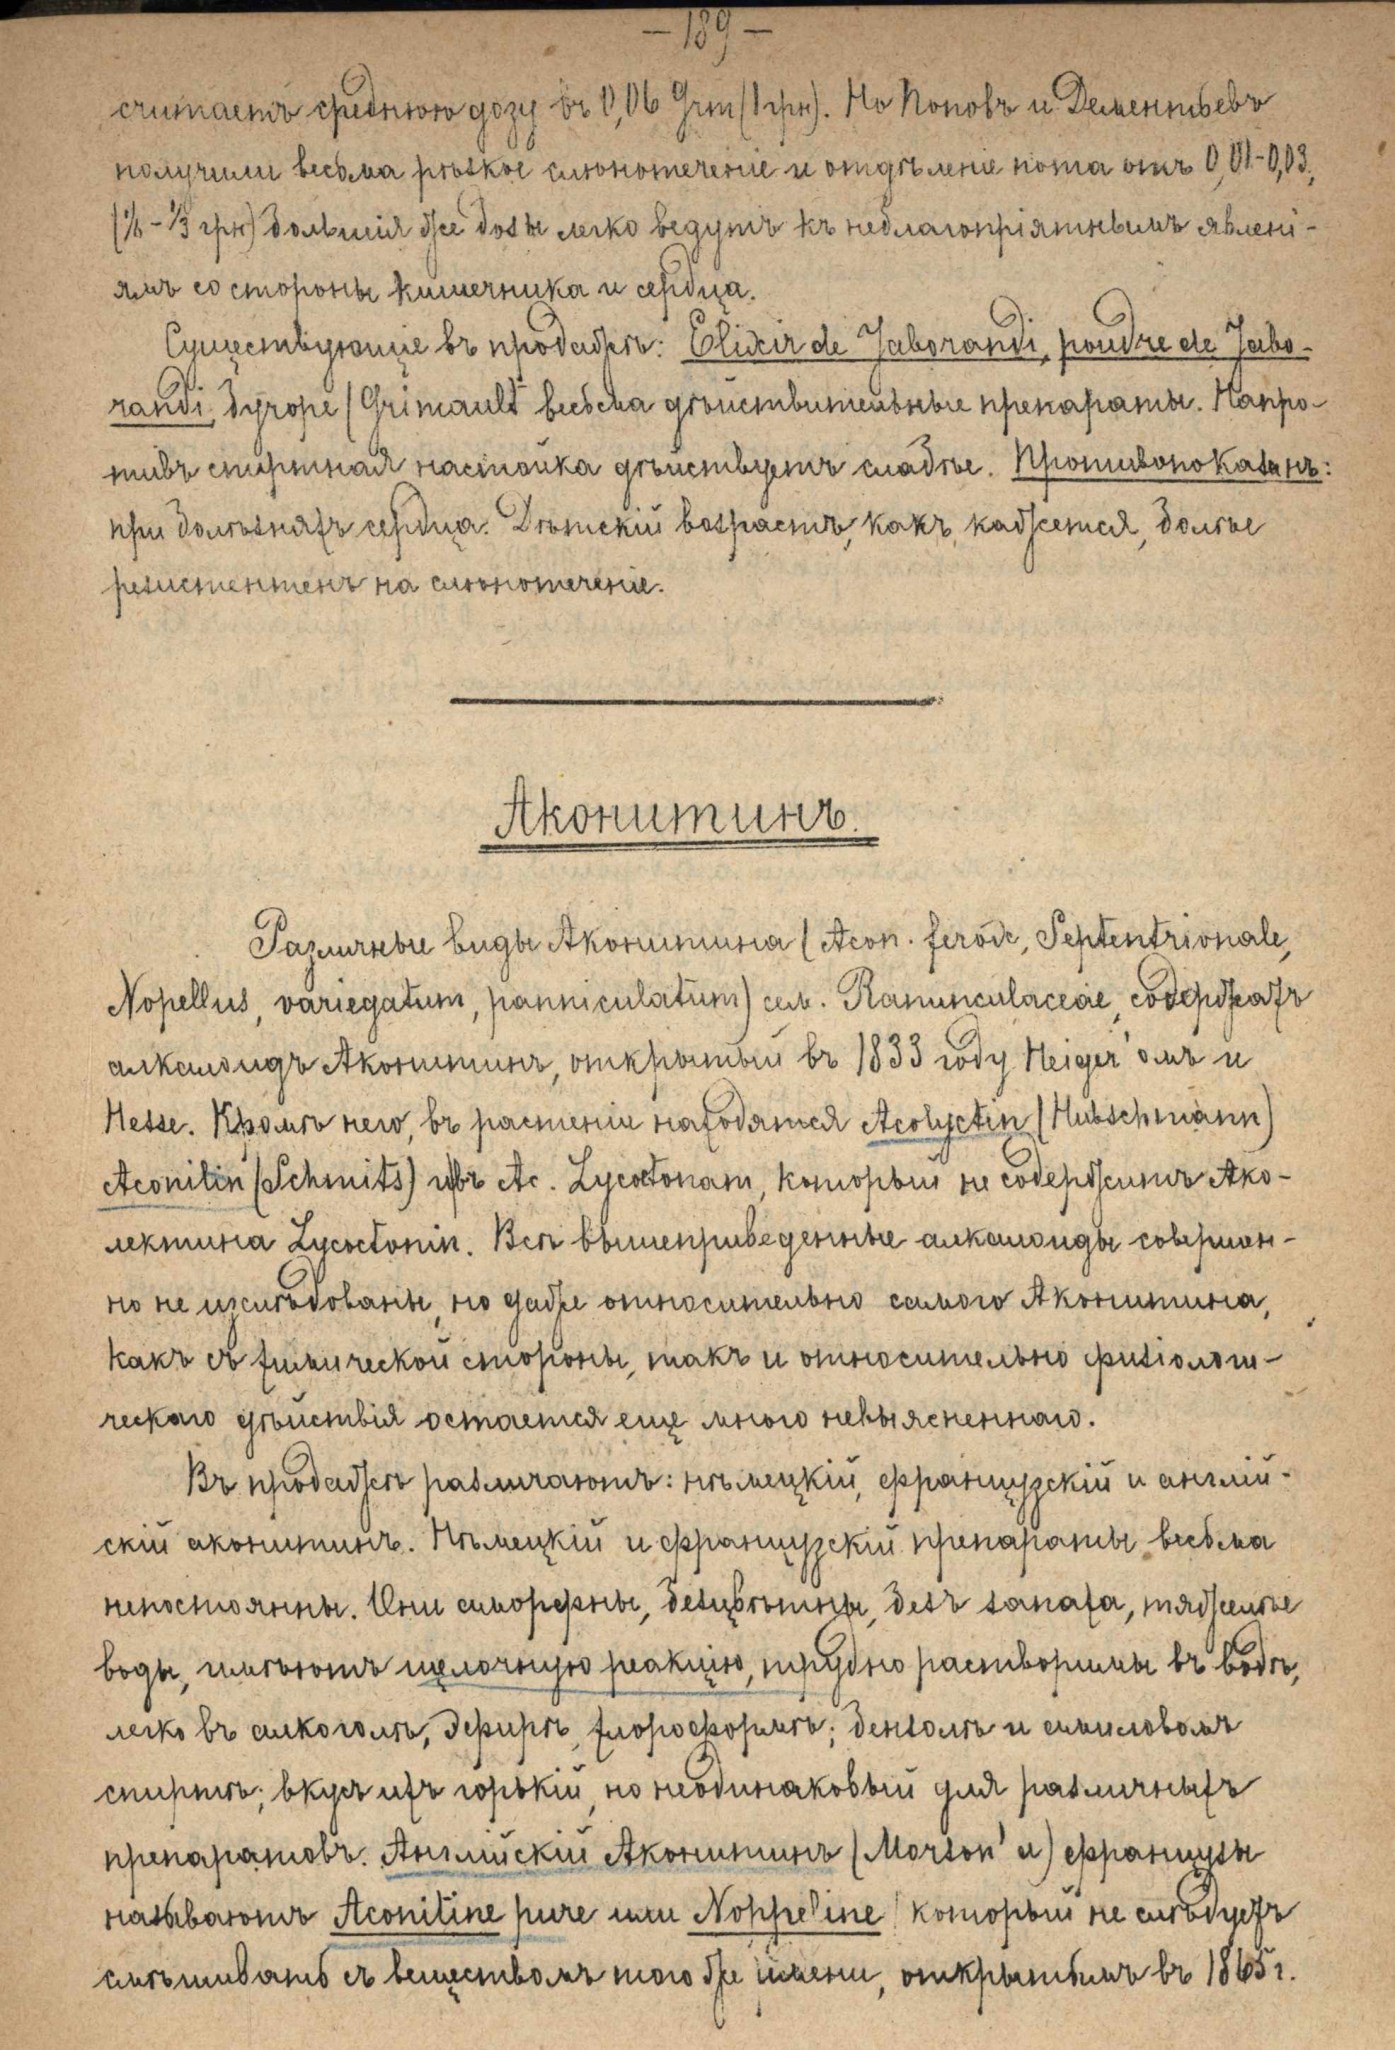 — 189 —
считаетъ среднюю дозу въ 0,06 Grm (1 грн). Но Поповъ и Дементьевъ
получили весьма рѣзкое слюнотеченіе и отдѣленіе пота отъ 0,01-0,03,
(⅙ - ⅓ грн) большія же дозы легко ведутъ къ неблагопріятнымъ явлені-
ямъ со стороны кишечника и сердца.
Существующіе въ продажѣ: Elixir de Jaborandi, poudre de Jabo-
randi, бугоре (Grimault весьма дѣйствительные препараты. Напро-
тивъ спиртная настойка дѣйствуетъ слабѣе. Противопоказанъ:
при болѣзняхъ сердца. Дѣтскій возрастъ, какъ кажется, болѣе
резистентенъ на слюнотеченіе.
Аконитинъ.
Различные виды Аконитина (Acon. ferox, Septentrionale,
Nopellus, variegatum, panniculatum) сем. Ranunculaceae, содержатъ
алкалоидъ Аконитинъ, открытый въ 1833 году Heiger'омъ и
Hesse. Кромѣ него, въ растеніи находятся Acolyctin (Hubschmann)
Aconitin (Schmits) и въ Ac. Lycoctonam, который не содержитъ Ако-
лектина Lycoctonin. Всѣ вышеприведенные алкалоиды совершен-
но не изслѣдованы, но даже относительно самого Аконитина,
какъ съ химической стороны, такъ и относительно физіологи-
ческаго дѣйствія остается еще много невыясненнаго.
Въ продажѣ различаютъ: нѣмецкій, французскій и англій-
скій аконитинъ. Нѣмецкій и французскій препараты весьма
непостоянны. Они аморфны, безцвѣтны, безъ запаха, тяжелѣе
воды, имѣютъ щелочную реакцію, трудно растворимы въ водѣ,
легко въ алкоголѣ, эфирѣ, хлороформѣ; бензолѣ и амиловомъ
спиртѣ; вкусъ ихъ горькій, но неодинаковый для различныхъ
препаратовъ. Англійскій Аконитинъ (Morson'а) французы
называютъ Aconitine pure или Noppeline который не слѣдуетъ
смѣшивать съ веществомъ того же имени, открытымъ въ 1865 г.